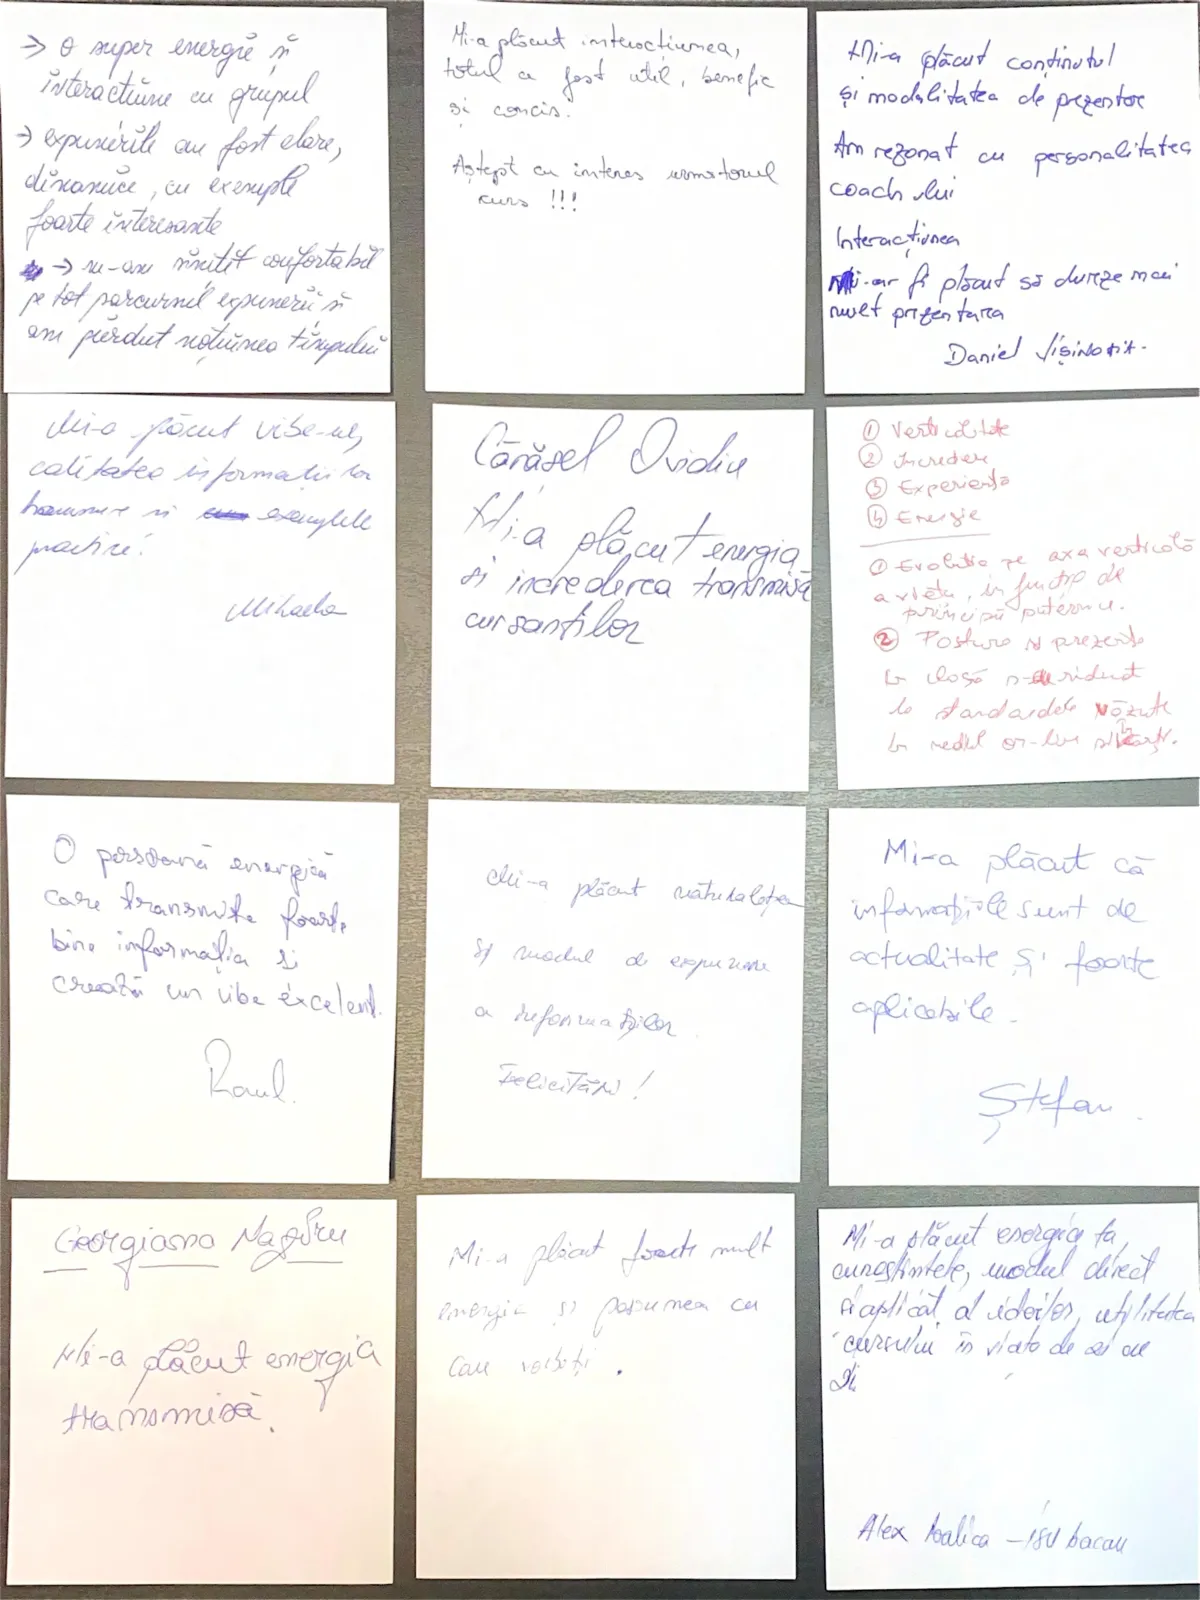 → O super energie și
interacțiune cu grupul
→ expunerile au fost clare,
dinamice, cu exemple
foarte interesante
→ m-am simțit confortabil
pe tot parcursul expunerii și
am pierdut noțiunea timpului
Mi-a plăcut interacțiunea,
totul a fost util, benefic
și concis.
Aștept cu interes următorul
curs !!!
Mi-a plăcut conținutul
și modalitatea de prezentare
Am rezonat cu personalitatea
coach-lui
Interacțiunea
Mi-ar fi plăcut să dureze mai
mult prezentarea
Daniel
Mi-a plăcut vibe-ul,
calitatea informațiilor
transmise și exemplele
practice!
Mihaela
Cărășel Ovidiu
Mi-a plăcut energia
și increderea transmisă
cursanților
① Verticalitate
② Incredere
③ Experiența
④ Energie
① Evoluție pe axa verticală
a vieții, în funcție de
principii puternice.
② Postura și prezența
în clasă s-a ridicat
la standardele văzute
în mediul on-line și cărți.
O persoană energică
care transmite foarte
bine informația si
crează un vibe excelent.
Raul.
Mi-a plăcut naturalețea
Și modul de expunere
a informațiilor.
Felicitări!
Mi-a plăcut că
informațiile sunt de
actualitate și foarte
aplicabile.
Ștefan.
Georgiana
Mi-a plăcut energia
transmisă.
Mi-a plăcut foarte mult
energia și pasiunea cu
care vorbiți.
Mi-a plăcut energia ta,
cunoștintele, modul direct
și aplicat al ideilor, utilitatea
cursului în viata de zi cu
zi
Alex - ISU bacau